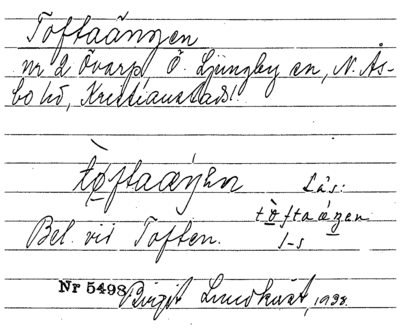 Toftaängen
nr 2 Övarp Ö. Ljungby sn, N. Ås-
bo hd, Kristianstads l.
tø̀ftaäŋen Läs:
tòftaäŋen
Bel. vid Toften. 1-s
Nr 5498 Birgit Lundkvist, 1938.